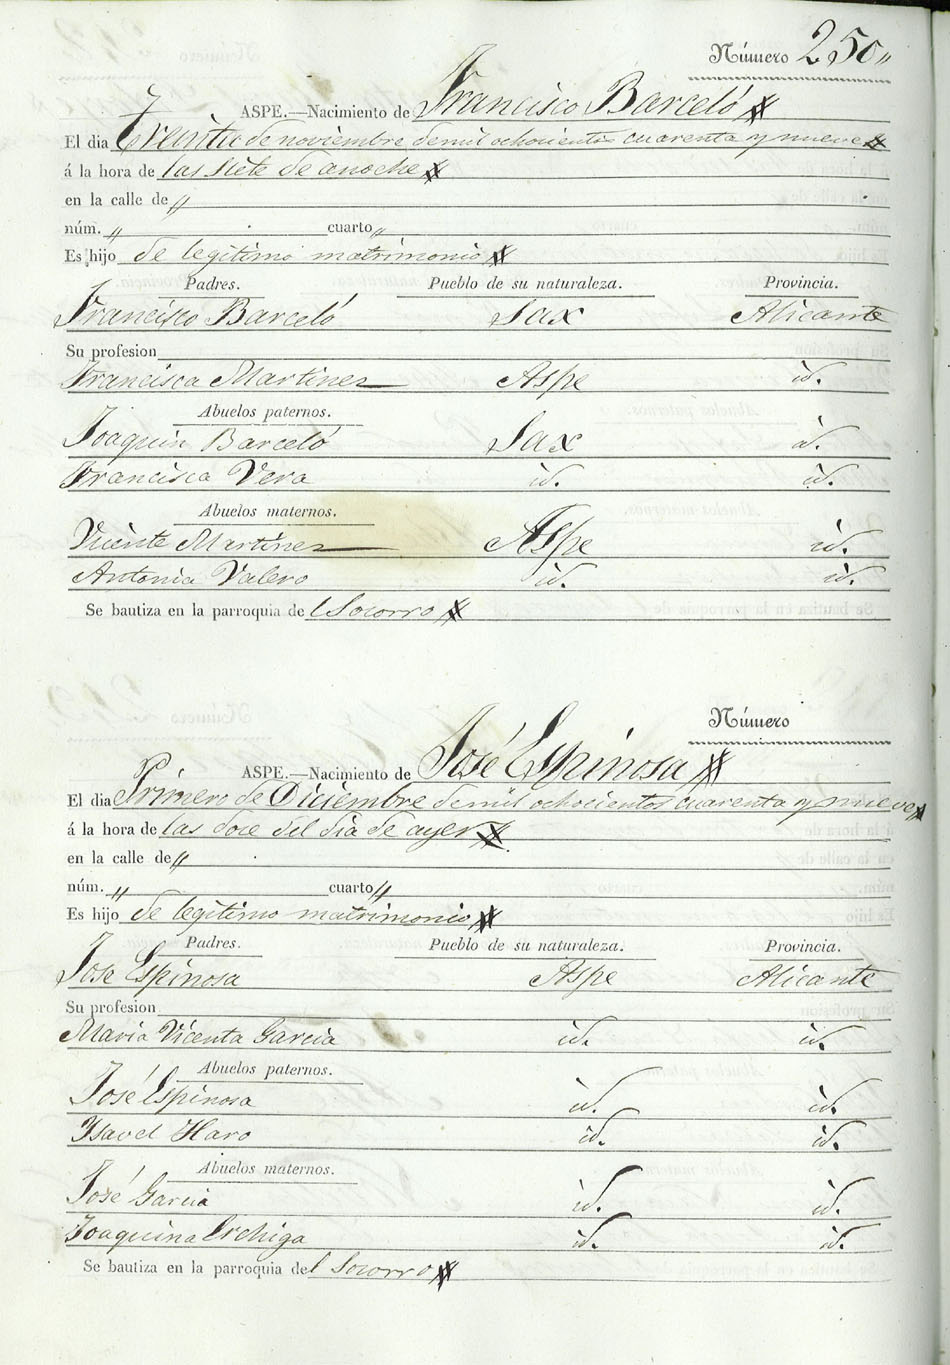 Número 250,,
ASPE.—Nacimiento de Francisco Barceló
El dia Treinta de noviembre de mil ochocientos cuarenta y nueve
á la hora de las siete de anoche
en la calle de ,,
núm. ,, cuarto ,,
Es hijo de legitimo matrimonio
Padres. Pueblo de su naturaleza. Provincia.
Francisco Barceló Sax Alicante
Su profesion
Francisca Martinez Aspe id.
Abuelos paternos.
Joaquin Barceló Sax id.
Francisca Vera id. id.
Abuelos maternos.
Vicente Martinez Aspe id.
Antonia Valero id. id.
Se bautiza en la parroquia del Socorro
Número
ASPE.—Nacimiento de José Espinosa
El dia Primero de Diciembre de mil ochocientos cuarenta y nueve
á la hora de las doce del dia de ayer
en la calle de ,,
núm. ,, cuarto ,,
Es hijo de legitimo matrimonio
Padres. Pueblo de su naturaleza. Provincia.
Jose Espinosa Aspe Alicante
Su profesion
Maria Vicenta Garcia id. id.
Abuelos paternos.
José Espinosa id. id.
Ysavel Haro id. id.
Abuelos maternos.
José Garcia id. id.
Joaquina id. id.
Se bautiza en la parroquia del Socorro